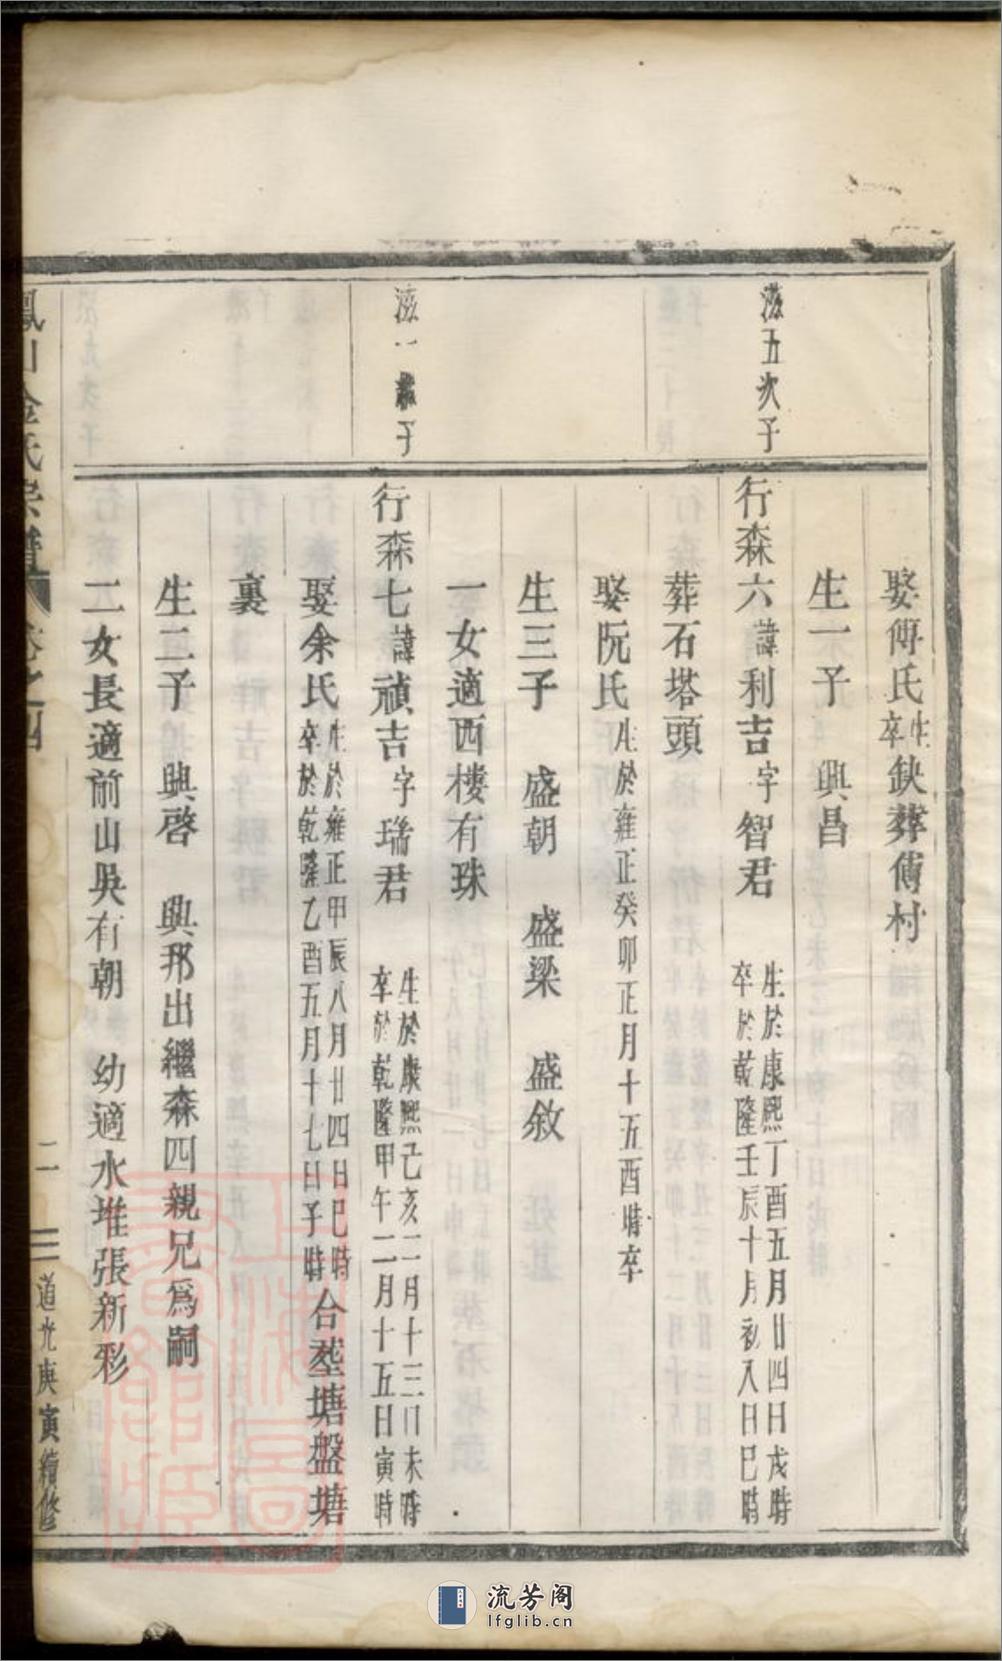 娶傅氏生卒缺葬傅村
生一子　興昌
滋五次子
行森六諱利吉字智君　生於康熙丁酉五月廿四日戌時
卒於乾隆壬辰十月初八日巳時
葬石塔頭
娶阮氏生於雍正癸卯正月十五酉時卒
生三子　盛朝　盛梁　盛敘
一女適西樓有珠
滋一繼子
行森七諱禎吉字瑞君　生於康熙己亥二月十三日未時
卒於乾隆甲午二月十五日寅時
娶余氏生於雍正甲辰八月廿四日巳時
卒於乾隆乙酉五月十七日子時合塟塘盤塘
裏
生二子　興啓　興邦出繼森四親兄爲嗣
二女長適前山吳有朝　幼適水堆張新彩
鳳川金氏宗譜　卷之四　二　道光庚寅續修
流芳阁
lfglib.cn